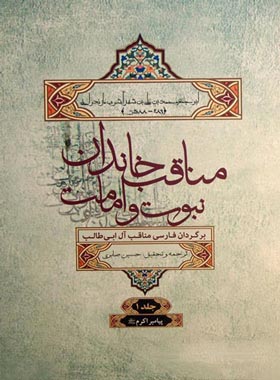 ابوجعفر محمد بن علی بن شهرآشوب مازندرانی
(۴۸۹ - ۵۸۸ ه‍.ق)
مناقب خاندان
نبوت و امامت
برگردان فارسی مناقب آل ابی طالب
ترجمه و تحقیق: حسین صابری
جلد ۱
پیامبر اکرم ﷺ